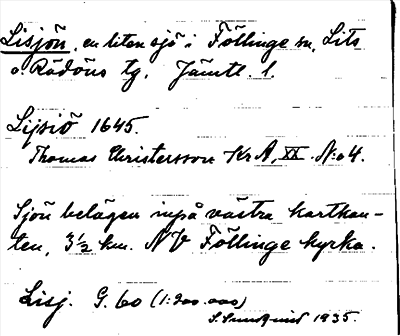 Lisjön, en liten sjö i Föllinge sn, Lits
o. Rödöns tg. Jämtl. l.
Lijsiö 1645.
Thomas Christersson Kr A, XX. N:o 4.
Sjön belägen inpå västra kartkan-
ten, 3½ km. NV Föllinge kyrka.
Lisj. G. 60 (1:200.000)
S. Sundquist 1935.